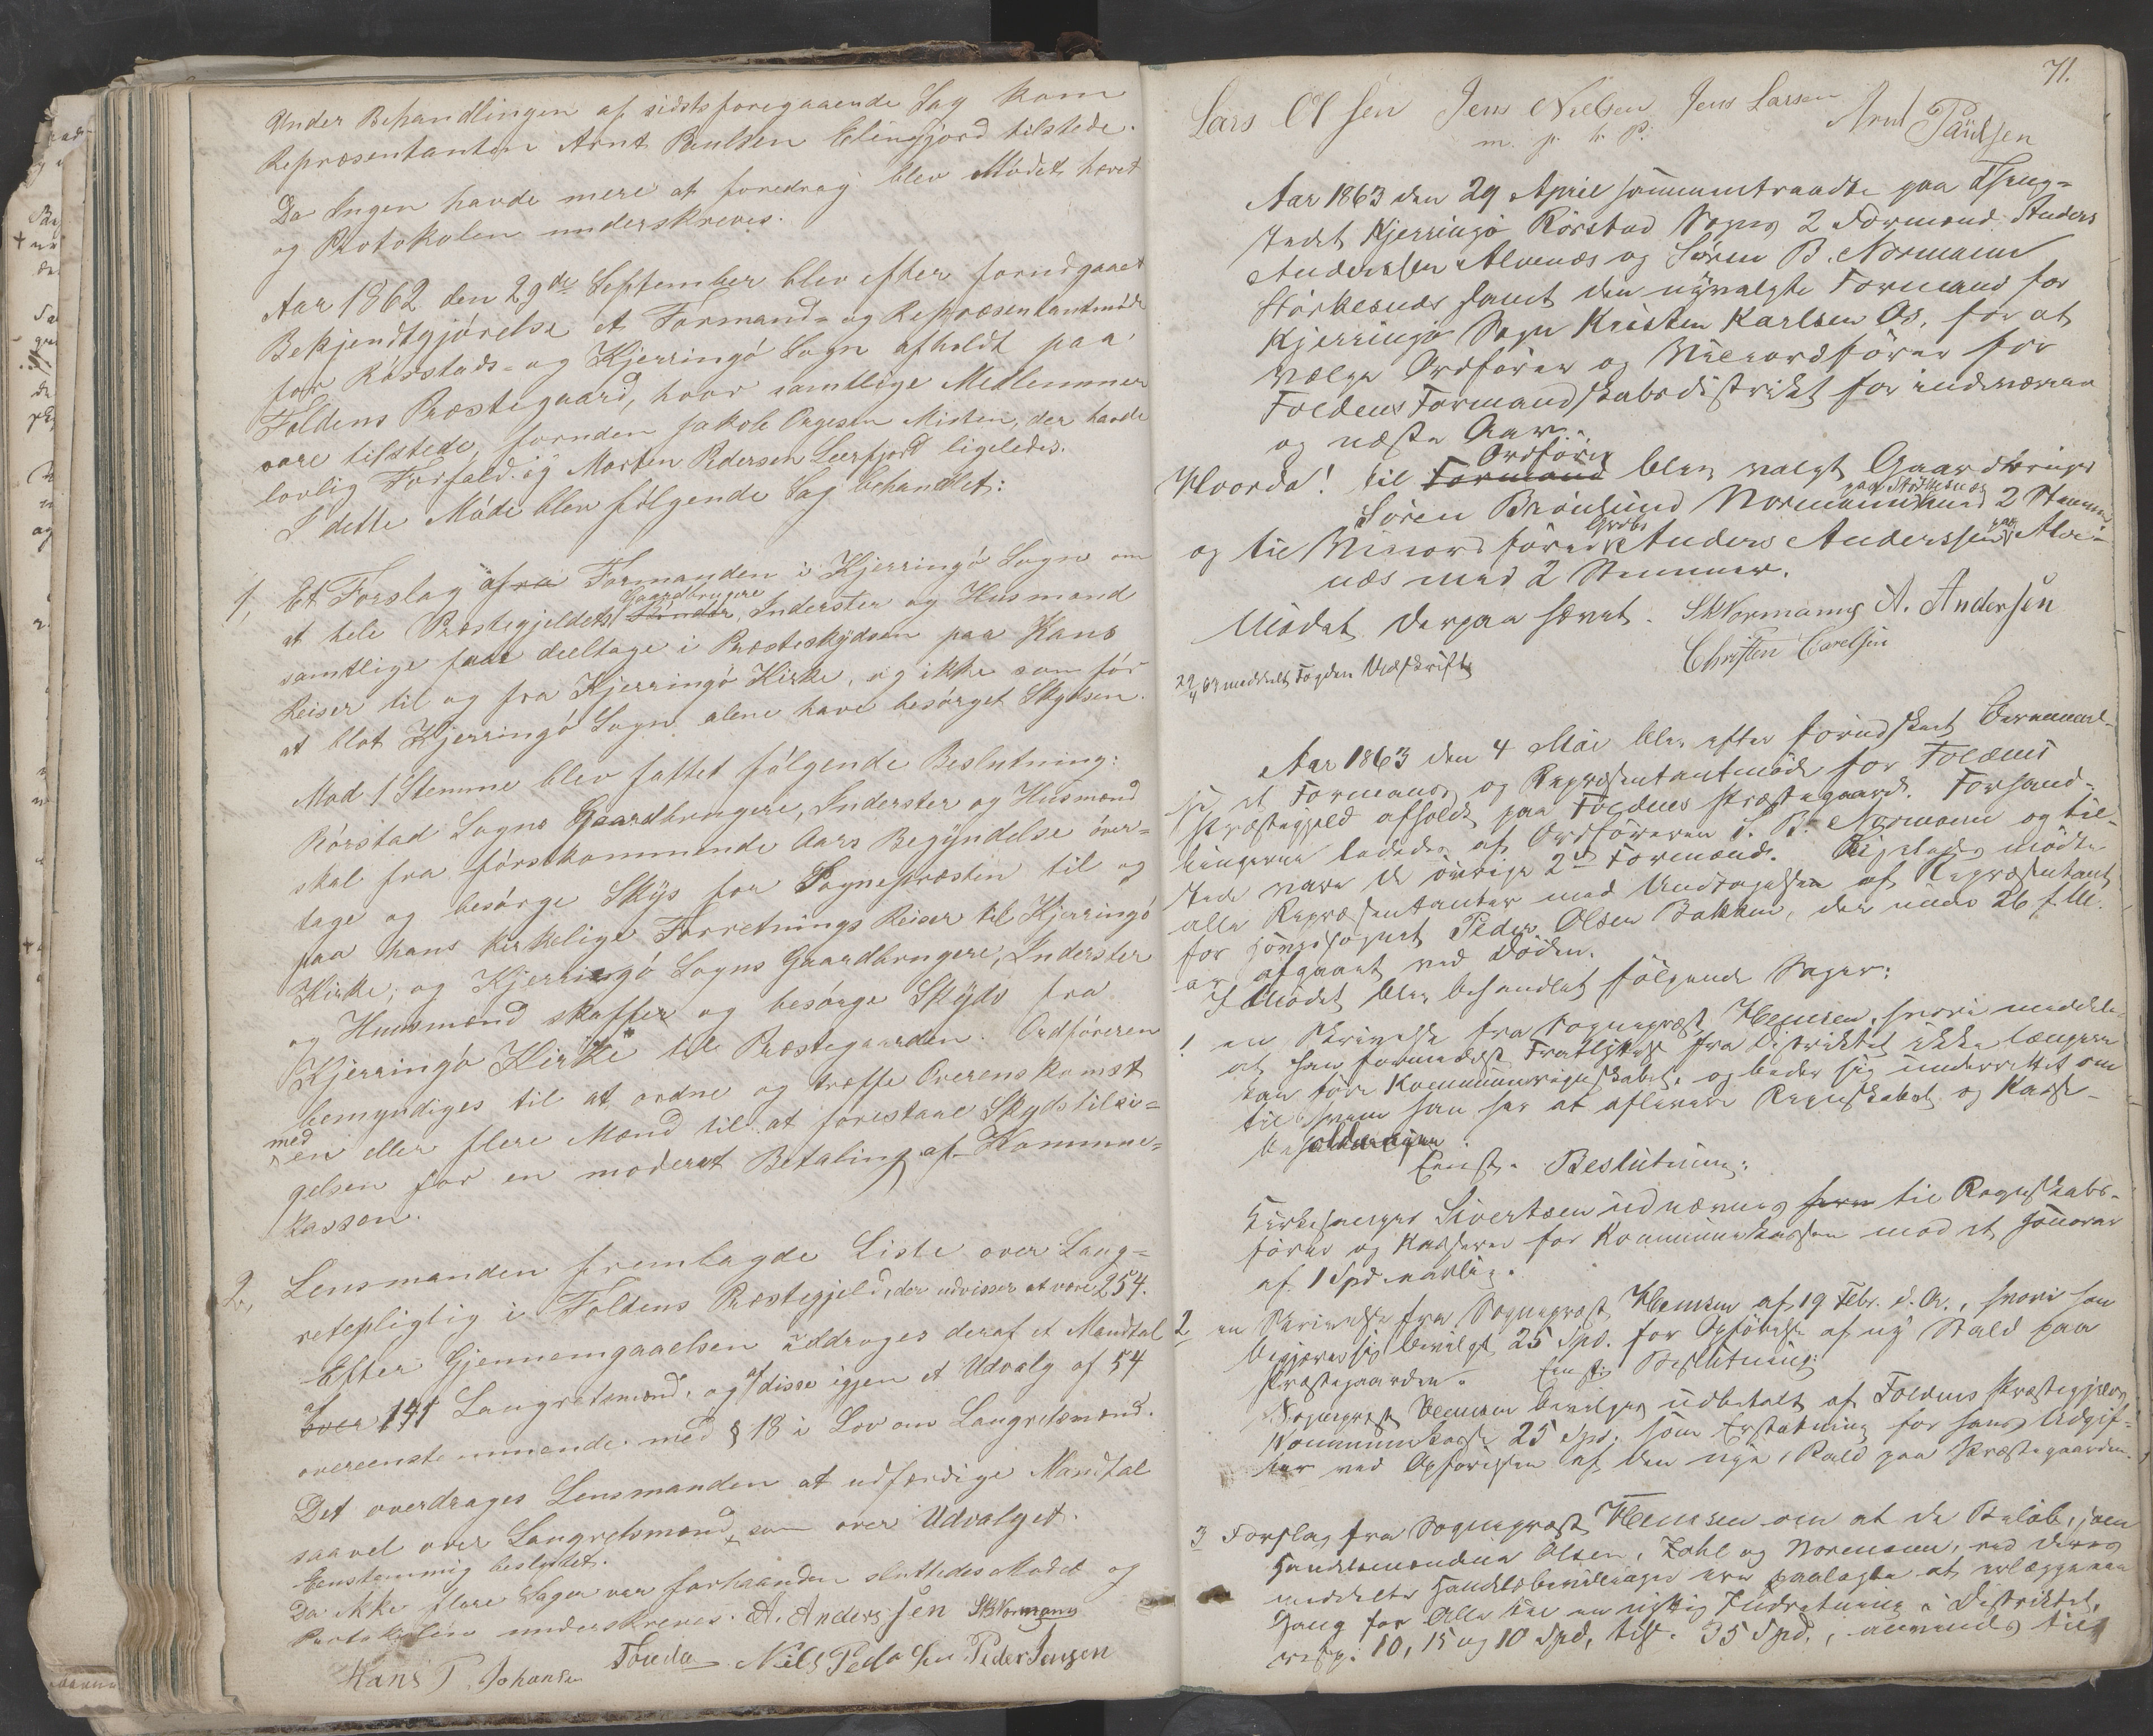 Under Behandlingen af sidstsforegaaende Sag kom
Repræsentanten Arnt Paulsen Elvingfjord tilstede.
Da Ingen havde mere at foredrag blev Mødet hævet
og Protokolen underskreves.
Aar 1862 den 29de September blev efter forudgaaet
Bekjendtgjørelse et Formand- og Repræsentantmøde
for Rørstads- og Kjerringø Sogn afholdt paa
Foldens Præstegaard, hvor samtlige Medlemmer
vare tilstede, foruden Jakob Misten, der havde
lovlig Forfald. og Morten Pedersen Leerfjord ligeledes.
I dette Møde blev følgende Sag behandlet:
1, Et Forslag fra Formanden i Kjerringø Sogn om
at hele Præstegjeldets Gaardbrugere, Inderster og Husmænd
samtlige faar deeltage i Præsteskydsen paa Hans
Reiser til og fra Kjerringø Kirke, og ikke som før
at blot Kjerringø Sogn alene have besørget Skydsen.
Mod 1 Stemme blev fattet følgende Beslutning:
Rørstad Sogns Gaardbrugere, Inderster og Husmænd
skal fra førstkommende Aars Begyndelse over-
tage og besørge Skyds for Sognepræsten til og
paa hans kirkelige Forretnings Reiser til Kjerringø
Kirke; og Kjerringø Sogns Gaardbrugere, Inderster
og Huusmænd skaffer og besørge Skyds fra
Kjerringø Kirke til Præstegaarden. Ordføreren
bemyndiges til at ordne og træffe Overenskomst
med en eller flere Mænd til at forestaae Skydstilsi-
gelsen for en moderat Betaling af Kommune-
kassen.
2, Lensmanden fremlagde Liste over Laug-
retepligtig i Foldens Præstegjeld, der udviser at være 254.
Efter Gjennemgaaelsen uddrages deraf et Mandtal
af over 141 Laugretsmænd, og af disse igjen et Udvalg af 54
overeenstemmende med § 18 i Lov om Laugretsmænd.
Det overdrages Lensmanden at udfærdige Mandtal
saavel over Laugretsmænd, som over Udvalget.
Eenstemmig besluttet.
Da ikke flere Sager var forhaanden sluttedes Mødet og
Protokolen underskreves. A. Anderssen SBNormann
Hans P. Johansen Nils Pedersen Peder Jensen
71.
Lars Olsen Jens Nielsen Jens Larsen Arnt Paulsen
m. p. h. P.
Aar 1863 den 29 April sammentraadte paa Thing-
stedet Kjerringø Rørstad Sogns 2 Formænd Anders
Anderssen Alvenæs og Søren B. Normann
Størkesnæs samt den nyvalgte Formand for
Kjerringø Sogn Kristen Karlsen Os, for at
vælge Ordfører og Viceordfører for
Foldens Formandskabsdistrikt for indeværende
og næste Aar.
Hvorda! til Formand Ordfører blev valgt Gaardbruger
Søren Brønlund Normann paa Størkesnæs med 2 Stemmer
og til Viceordfører Grdbr. Anders Anderssen paa Alve-
næs med 2 Stemmer.
Mødet derpaa hævet. SBNormann A. Andersen
Christen Carelsen
29/4 63 meddelt Fogden Udskrift
Aar 1863 den 4 Mai blev efter forudskeet Berammel-
se, et Formands og Repræsentantmøde for Foldens
Præstegjeld afholdt paa Foldens Præstegaard. Forhand-
lingerne lededes af Ordføreren S. B. Normann og til-
stede vare de øvrige 2de Formænd. Ligeledes mødte
alle Repræsentanter med Undtagelse af Repræsentant
for Hovedsognet Peder Olsen Bakken, der under 26 f. M.
er afgaaet ved Døden.
I Mødet blev behandlet følgende Sager:
1 en Skrivelse fra Sognepræst Hemsen, hvori meddeles
at han formedelst Fraflyttelse fra Distriktet ikke længere
kan føre Kommuneregnskabet, og beder sig underrettet om
til hvem han har at aflevere Regnskabet og Kasse-
beholdningen.
Eenst. Beslutning:
Kirkesanger Sivertsen udnævnes som til Regnskabs-
fører og Kasserer for Kommunekassen mod et Honorar
af 1 Spd. aarlig.
2 en Skrivelse fra Sognepræst Hemsen af 19 Febr. d. A., hvori han
begjærer sig bevilget 25 Spd. for Opførelse af ny Stald paa
Præstegaarden. Eenst. Beslutning:
Sognepræst Hemsen bevilges udbetalt af Foldens Præstegjelds
Kommunekasse 25 Spd. som Erstatning for hans Udgif-
ter ved Opførelsen af den nye Stald paa Præstegaarden.
3 Forslag fra Sognepræst Hemsen om at de Beløb, som
Handelsmændene Olsen, Zahl og Normann, ved deres
meddelte Handelsbevillinger ere paalagte at erlægge een
Gang for Alle til en nyttig Indretning i Distriktet,
resp. 10, 15 og 10 Spd, tils. 35 Spd., anvendes til